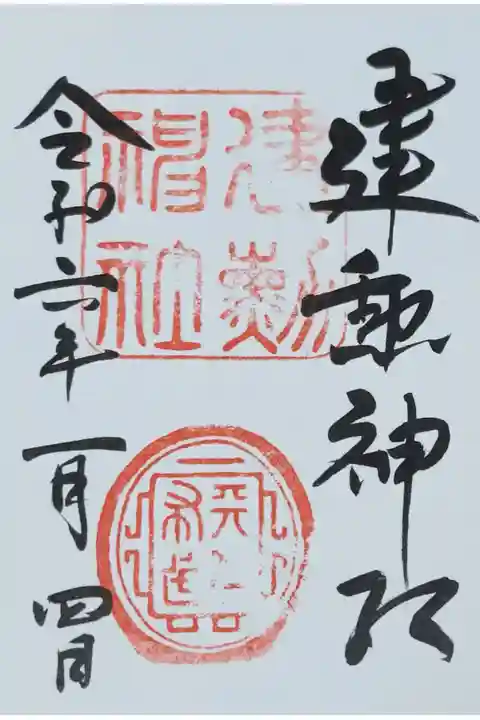 建勲神社
令和六年一月四日
建勲
神社
天下布武